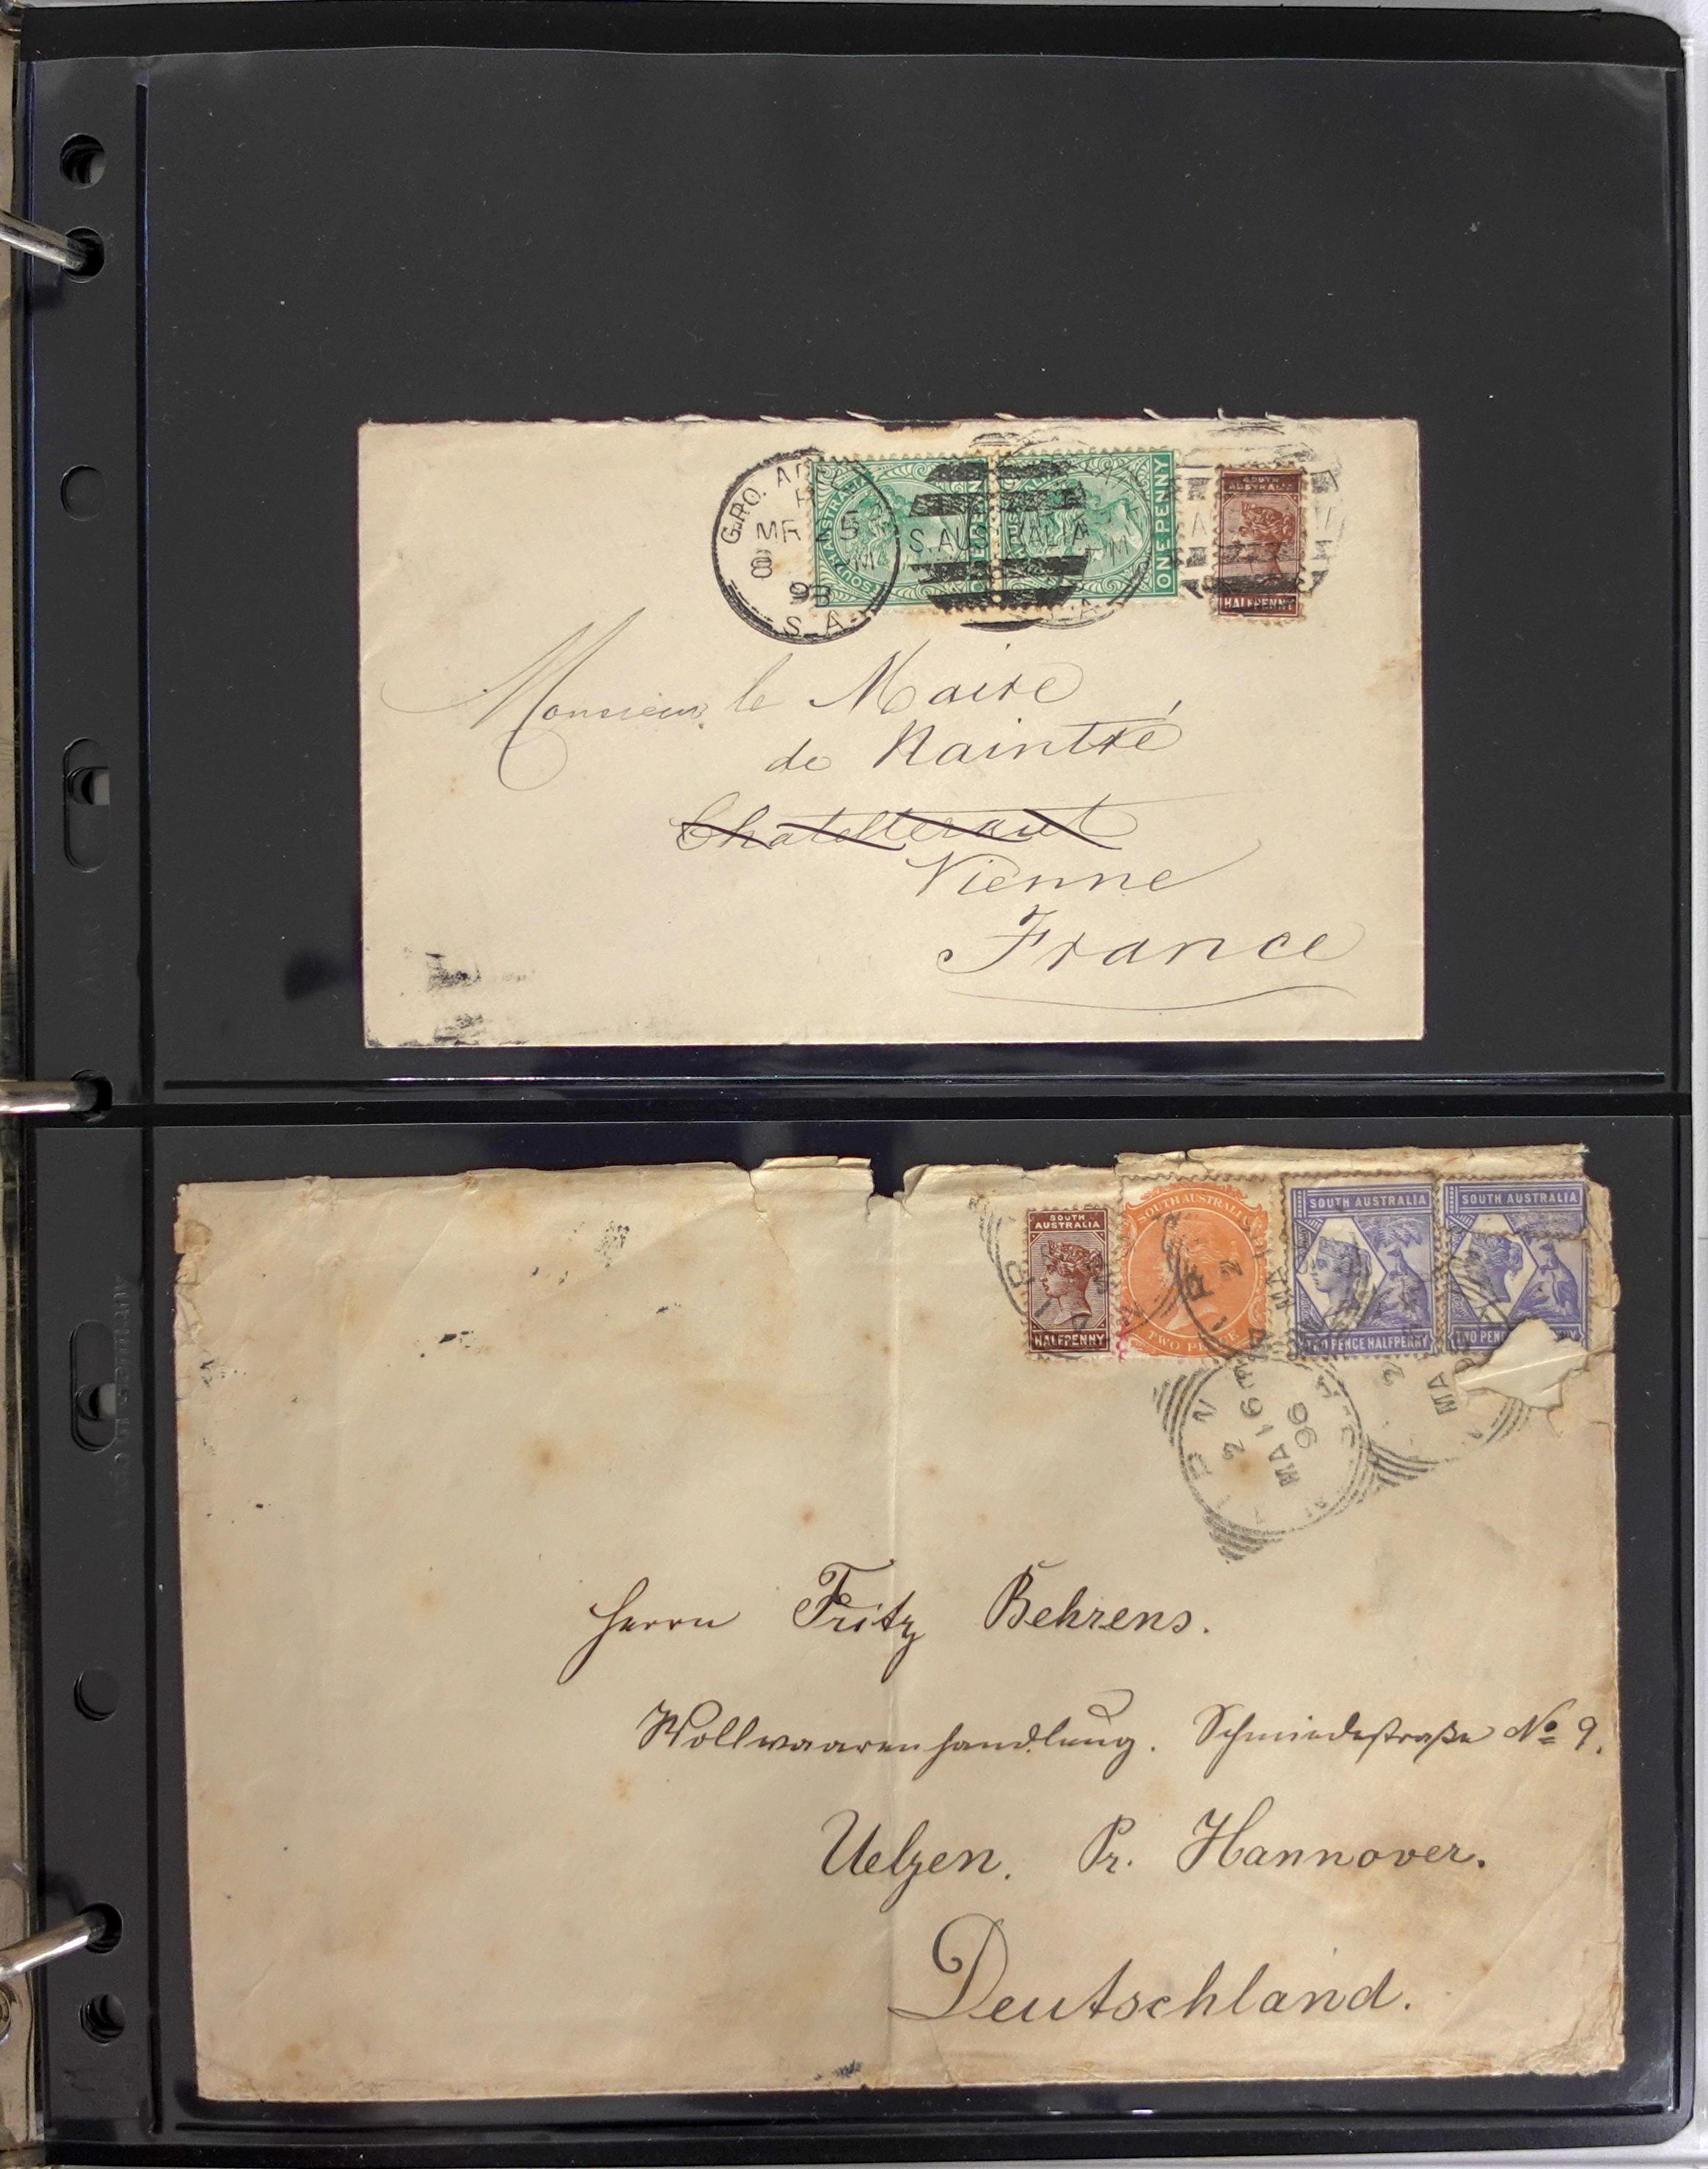 G.P.O. AD
MR 5
8
93
S. A.
S. AUSTRALIA
SOUTH AUSTRALIA
ONE PENNY
SOUTH AUSTRALIA
ONE PENNY
SOUTH
AUSTRALIA
HALFPENNY
Monsieur le Maire
de Naintré
Chatelleraut
Vienne
France
SOUTH
AUSTRALIA
HALFPENNY
SOUTH AUSTRALIA
TWO PENCE
SOUTH AUSTRALIA
TWO PENCE HALFPENNY
SOUTH AUSTRALIA
TWO PEN NY
2
MA 16
96
Herrn Fritz Behrens.
Wollwaarenhandlung. Schmiedestraße No 9.
Uelzen. Pr. Hannover.
Deutschland.